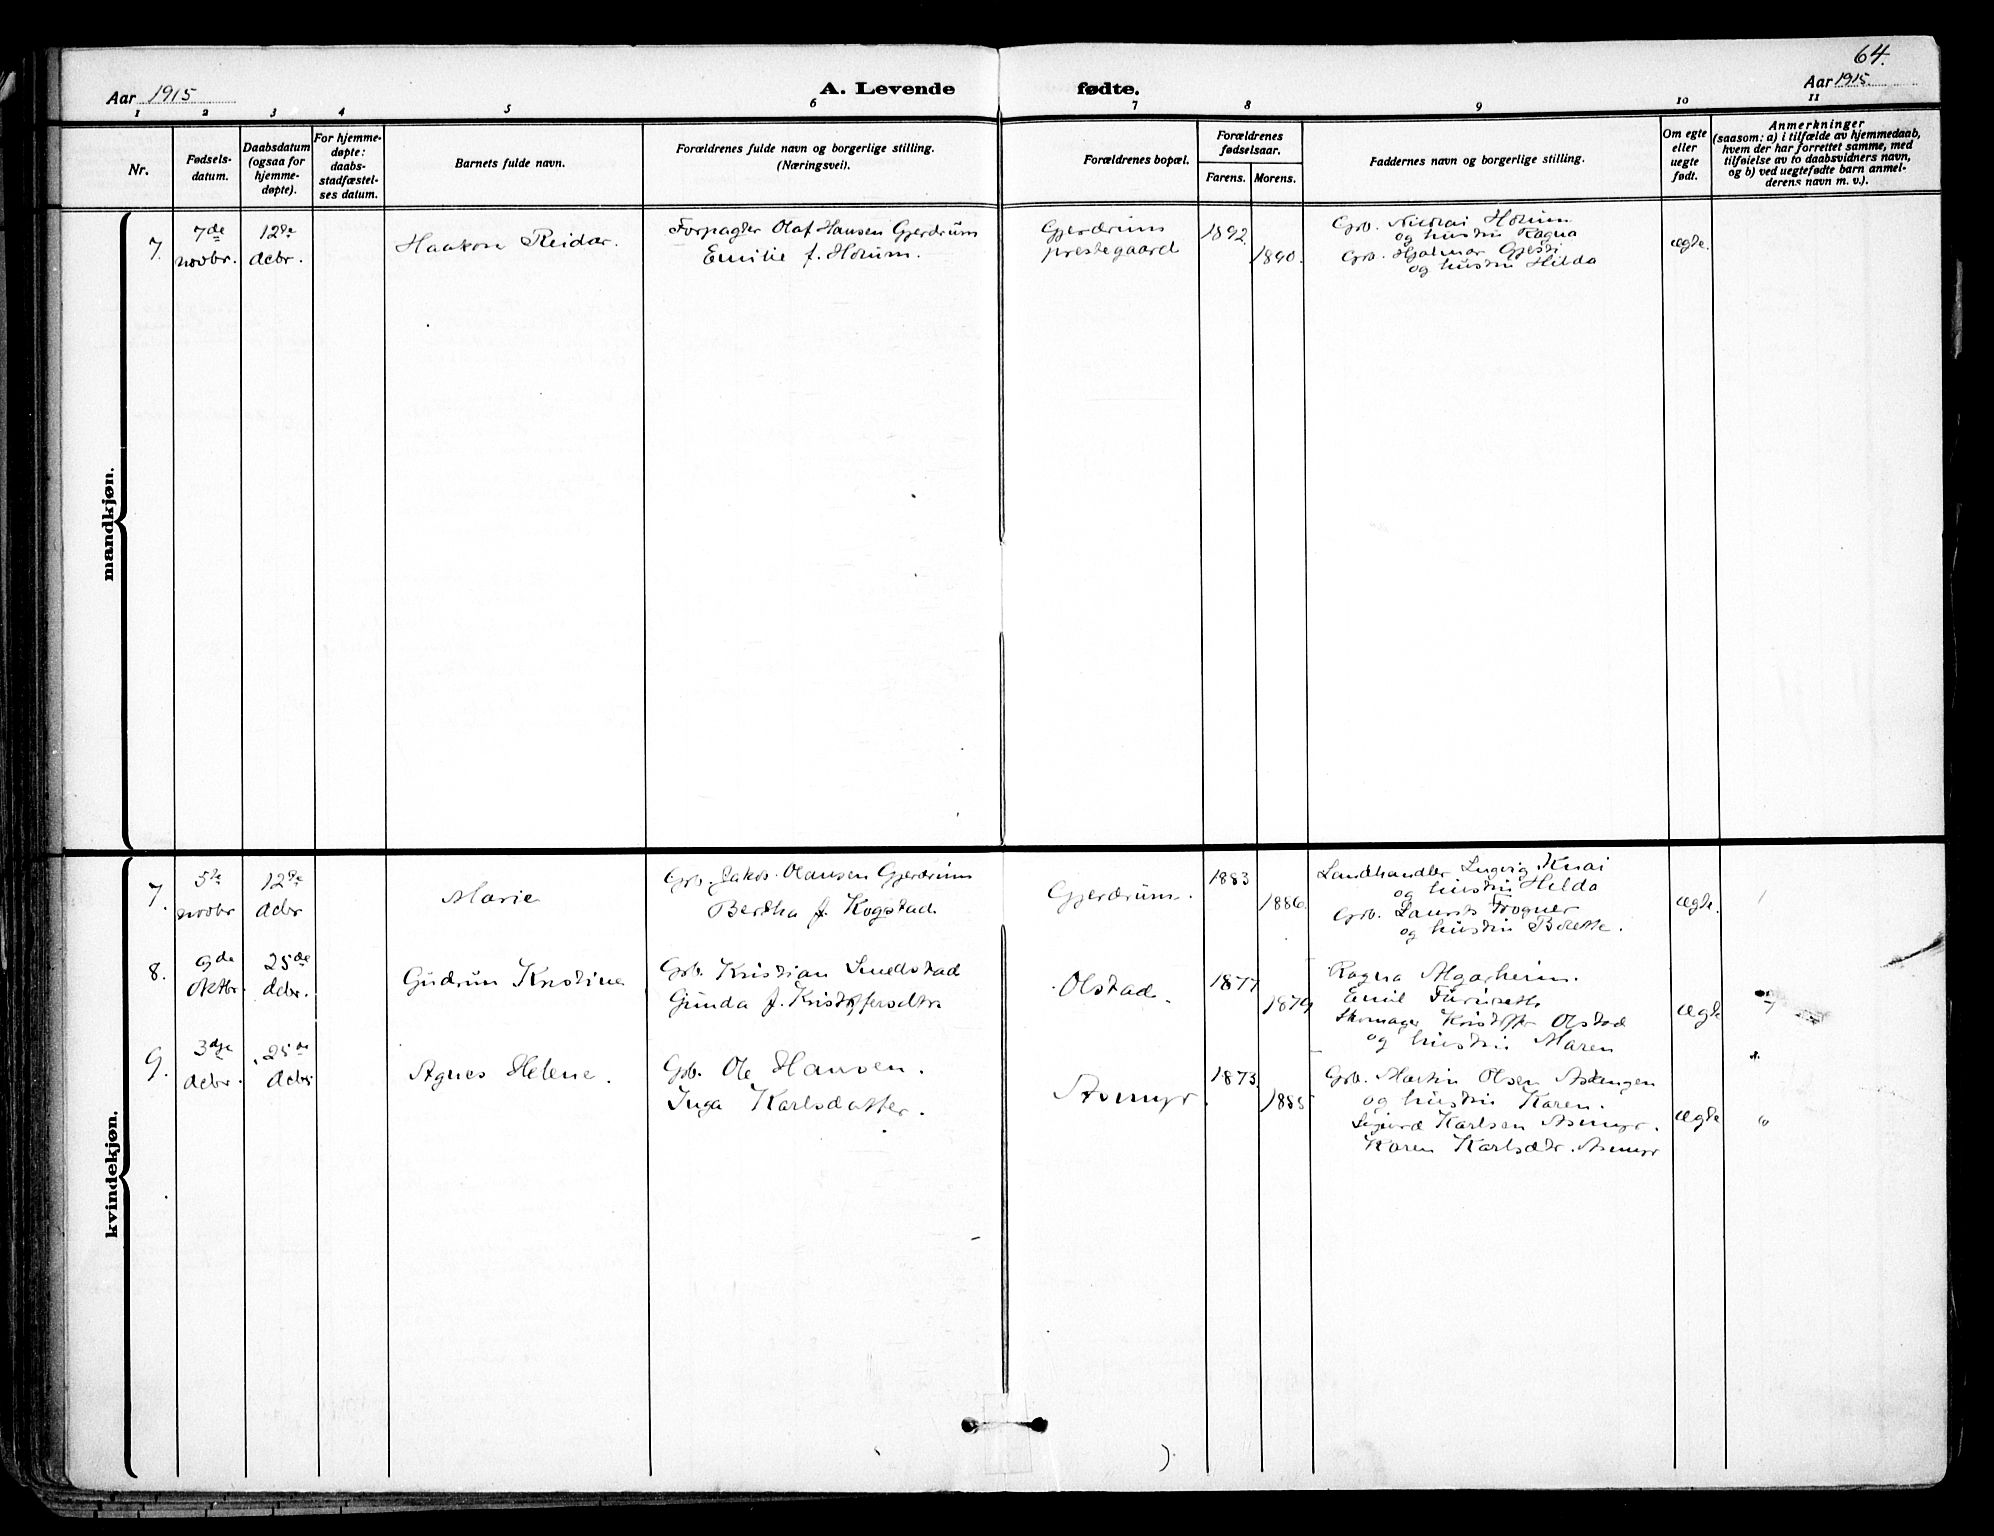 64.
Aar 1915
A. Levende fødte.
Aar 1915
1 2 3 4 5 6 7 8 9 10 11
Nr.
Fødsels-
datum.
Daabsdatum
(ogsaa for
hjemme-
døpte).
For hjemme-
døpte:
daabs-
stadfæstel-
ses datum.
Barnets fulde navn.
Forældrenes fulde navn og borgerlige stilling.
(Næringsvei).
Forældrenes bopæl.
Forældrenes
fødselsaar.
Farens. Morens.
Faddernes navn og borgerlige stilling.
Om egte
eller
uegte
født.
Anmerkninger
(saasom: a) i tilfælde av hjemmedaab,
hvem der har forrettet samme, med
tilføielse av to daabsvidners navn,
og b) ved uegtefødte barn anmel-
derens navn m. v.).
mandkjøn.
7.
7de
novbr.
12te
decbr.
Haakon Reidar.
Forpagter Olaf Hansen Gjerdrum
Emilie f. Horum.
Gjerdrum
prestegaard
1892
1890.
Grb. Nicolai Horum
og hustru Ragna
Grb. Hjalmar Gjesti
og hustru Hilda
ægte.
kvindekjøn.
7.
5te
novbr
12te
decbr
Marie
Grb. Jakob Olausen Gjerdrum
Bertha f. Kogstad.
Gjerdrum.
1883
1886.
Landhandler Ludvig Knai
og hustru Hilda
Grb. Laurits Trogner
og hustru Borette.
ægte.
8.
9de
oktbr.
25de
decbr.
Gudrun Kristine
Grb. Kristian Smedstad
Gunda f. Kristoffersdtr
Olstad.
1877
1879
Ragna Algarheim.
Emil Furuseth
Skomager Kristoffer Olstad
og hustru Maren
ægte
7
9.
3dje
decbr.
25de
decbr.
Agnes Helene.
Grb. Ole Hansen.
Inga Karlsdatter.
Asmyr.
1873.
1885
Grb. Martin Olsen Asengen
og hustru Karen.
Sigurd Karlsen Asmyr.
Karen Karlsdtr. Asmyr
ægte
"